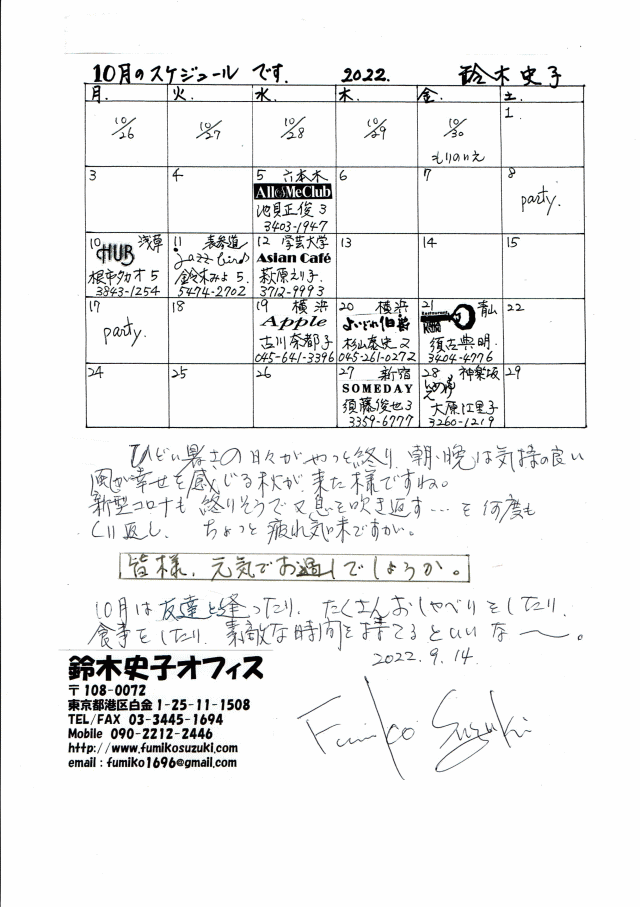 10月のスケジュール です. 2022. 鈴木史子
月. 火. 水. 木. 金. 土.
10/26 10/27 10/28 10/29 10/30 もりのいえ 1.
3 4 5 六本木 6 7 8
All of Me Club party.
池貝正俊 3
3403-1947
10 浅草 11 表参道 12 学芸大学 13 14 15
HUB jazz bird Asian Café
根市タカオ 5 鈴木みよ 5. 萩原えり子.
3843-1254 5474-2702 3712-9993
17 18 19 横浜 20 横浜 21 青山 22
party. Apple よいどれ伯爵
古川奈都子 杉山泰史 2 須古典明.
045-641-3396 045-261-0272 3404-4776
24 25 26 27 新宿 28 神楽坂 29
SOMEDAY もりのいえ
須藤俊也 3 大原江里子
3359-6777 3260-1219
ひどい暑さの日々がやっと終り、朝・晩は気持の良い
風が幸せを感じる秋が来た様ですね。
新型コロナも終りそうで又息を吹き返す…を何度も
くり返し、ちょっと疲れ気味ですかい。
皆様、元気でお過しでしょうか。
10月は友達と逢ったり、たくさんおしゃべりをしたり、
食事をしたり、素敵な時間を持てるといいな〜。
2022.9.14
鈴木史子オフィス
〒108-0072
東京都港区白金 1-25-11-1508
TEL/FAX 03-3445-1694
Mobile 090-2212-2446
http://www.fumikosuzuki.com
email : fumiko1696@gmail.com
Fumiko Suzuki